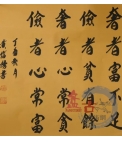 奢者富不足
儉者貧有餘
奢者心常貧
儉者心常富
丁酉年